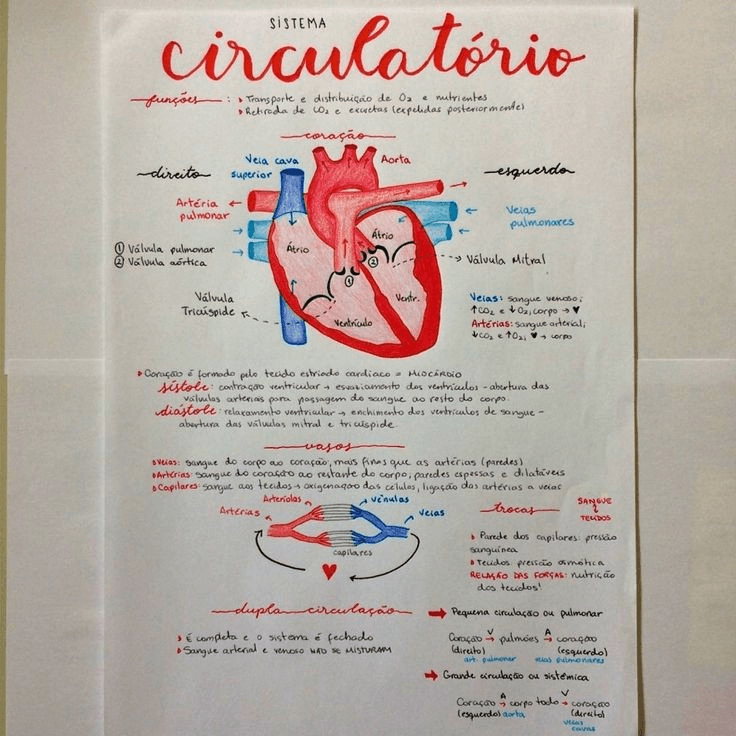 SISTEMA
circulatório
funções: • Transporte e distribuição de O2 e nutrientes
• Retirada de CO2 e excretas (expelidas posteriormente)
coração
direito
Veia cava
superior
Aorta
esquerdo
Artéria
pulmonar
Veias
pulmonares
Átrio
Átrio
① Válvula pulmonar
② Válvula aórtica
①
②
Válvula Mitral
Válvula
Tricúspide
Ventrículo
Ventr.
Veias: sangue venoso;
↑CO2 e ↓O2; corpo → ♥
Artérias: sangue arterial;
↓CO2 e ↑O2; ♥ → corpo
• Coração é formado pelo tecido estriado cardíaco = MIOCÁRDIO
sístole: contração ventricular → esvaziamento dos ventrículos - abertura das
válvulas arteriais para passagem do sangue ao resto do corpo.
diástole: relaxamento ventricular → enchimento dos ventrículos de sangue -
abertura das válvulas mitral e tricúspide.
vasos
• Veias: sangue do corpo ao coração, mais finas que as artérias (paredes)
• Artérias: sangue do coração ao restante do corpo; paredes espessas e dilatáveis
• Capilares: sangue aos tecidos → oxigenação das células, ligação das artérias a veias
Arteríolas
Vênulas
Artérias
Veias
capilares
trocas
SANGUE
TECIDOS
• Parede dos capilares: pressão
sanguínea
• Tecidos: pressão osmótica
RELAÇÃO DAS FORÇAS: nutrição
dos tecidos!
dupla circulação
• É completa e o sistema é fechado
• Sangue arterial e venoso NÃO SE MISTURAM
→ Pequena circulação ou pulmonar
Coração V→ pulmões A→ coração
(direito) (esquerdo)
art. pulmonar veias pulmonares
→ Grande circulação ou sistêmica
Coração A→ corpo todo V→ coração
(esquerdo) aorta (direito)
veias
cavas